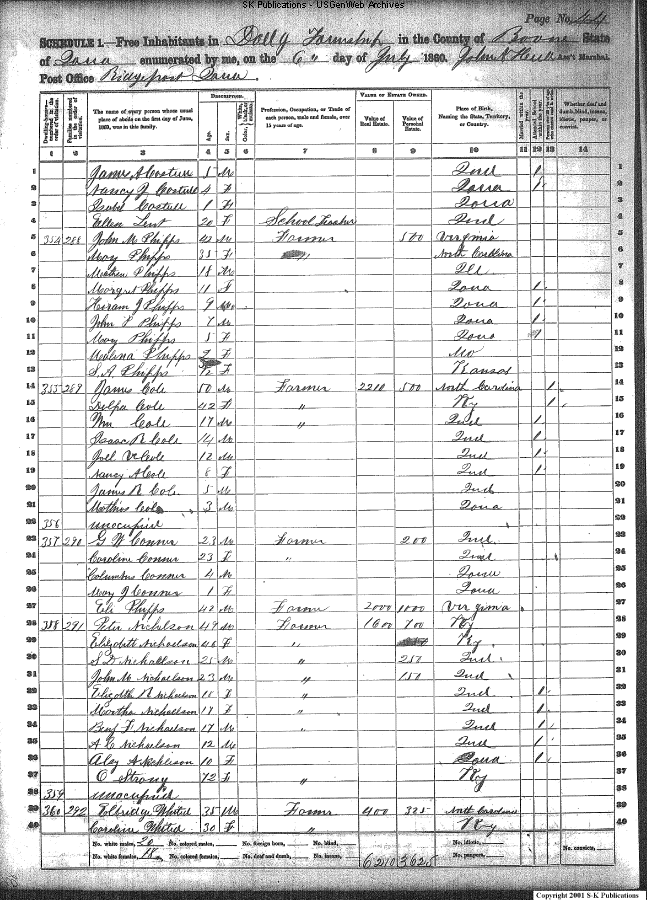 SK Publications - USGenWeb Archives
Page No. 44
SCHEDULE 1.—Free Inhabitants in Township in the County of Boone State
of Iowa enumerated by me, on the 6 " day of July 1860. John Ass't Marshal.
Post Office Ridgeport Iowa
Dwelling-houses—numbered in the order of visitation.
Families numbered in the order of visitation.
The name of every person whose usual place of abode on the first day of June, 1860, was in this family.
DESCRIPTION.
Age.
Sex.
Color,
Profession, Occupation, or Trade of each person, male and female, over 15 years of age.
VALUE OF ESTATE OWNED.
Value of Real Estate.
Value of Personal Estate.
Place of Birth, Naming the State, Territory, or Country.
Married within the year.
Attended School within the year.
Whether deaf and dumb, blind, insane, idiotic, pauper, or convict.
1 2 3 4 5 6 7 8 9 10 11 12 13 14
1 James A 5 M Ind 1 1
2 Nancy J 4 F Iowa 1 2
3 1 F Iowa 3
4 Ellen Lent 20 F School Teacher Ind 4
5 354 288 John M Phipps 43 M Farmer 500 Virginia 5
6 Mary Phipps 35 F North Carolina 6
7 Phipps 18 M Ill 7
8 Margret Phipps 11 F Iowa 1 8
9 Hiram J Phipps 9 M Iowa 1 9
10 John Phipps 7 M Iowa 1 10
11 Mary Phipps 5 F Iowa 1 11
12 Malina Phipps 2 F Mo 12
13 S.A. Phipps F Kansas 13
14 355 289 James Cole 50 M Farmer 2210 500 North Carolina 1 14
15 Delpha Cole 42 F " Ky 1 15
16 Wm Cole 17 M " Ind 1 16
17 Isaac R Cole 14 M Ind 1 17
18 Joel V Cole 12 M Ind 1 18
19 Nancy A Cole 8 F Ind 1 19
20 James R Cole 5 M Ind 20
21 Mathias Cole 3 M Iowa 21
22 356 unocupied 22
23 357 290 G W Conner 23 M Farmer 200 Ind 23
24 Caroline Conner 23 F " Ind 24
25 Columbus Conner 4 M Iowa 25
26 Mary J Conner 1 F Iowa 26
27 Eli Phipps 42 M Farmer 2000 1000 Virginia 27
28 358 291 Peter Nicholson 49 M Farmer 1600 700 Ky 28
29 Elizabeth Nichaelson 46 F " Ky 29
30 S D Nichallson 25 M " 250 Ind 30
31 John M Nichaelson 23 M " 150 Ind 31
32 Elizabeth R Nichaelson 18 F " Ind 1 32
33 Martha Nichaelson 17 F " Ind 1 33
34 Benj F Nichaelson 17 M " Ind 1 34
35 A C Nichaelson 12 M Ind 1 35
36 Nichleson 10 F Iowa 1 36
37 O Strong 72 F " Ky 37
38 359 unocupied 38
39 360 292 Elbridge Whited 35 M Farmer 400 325 North Carolina 39
40 Caroline Whited 30 F " Ky 40
No. white males, 20 No. colored males, No. foreign born, No. blind, No. idiotic, No. convicts,
No. white females, 18 No. colored females, No. deaf and dumb, No. insane, 6210 3625 No. paupers,
Copyright 2001 S-K Publications